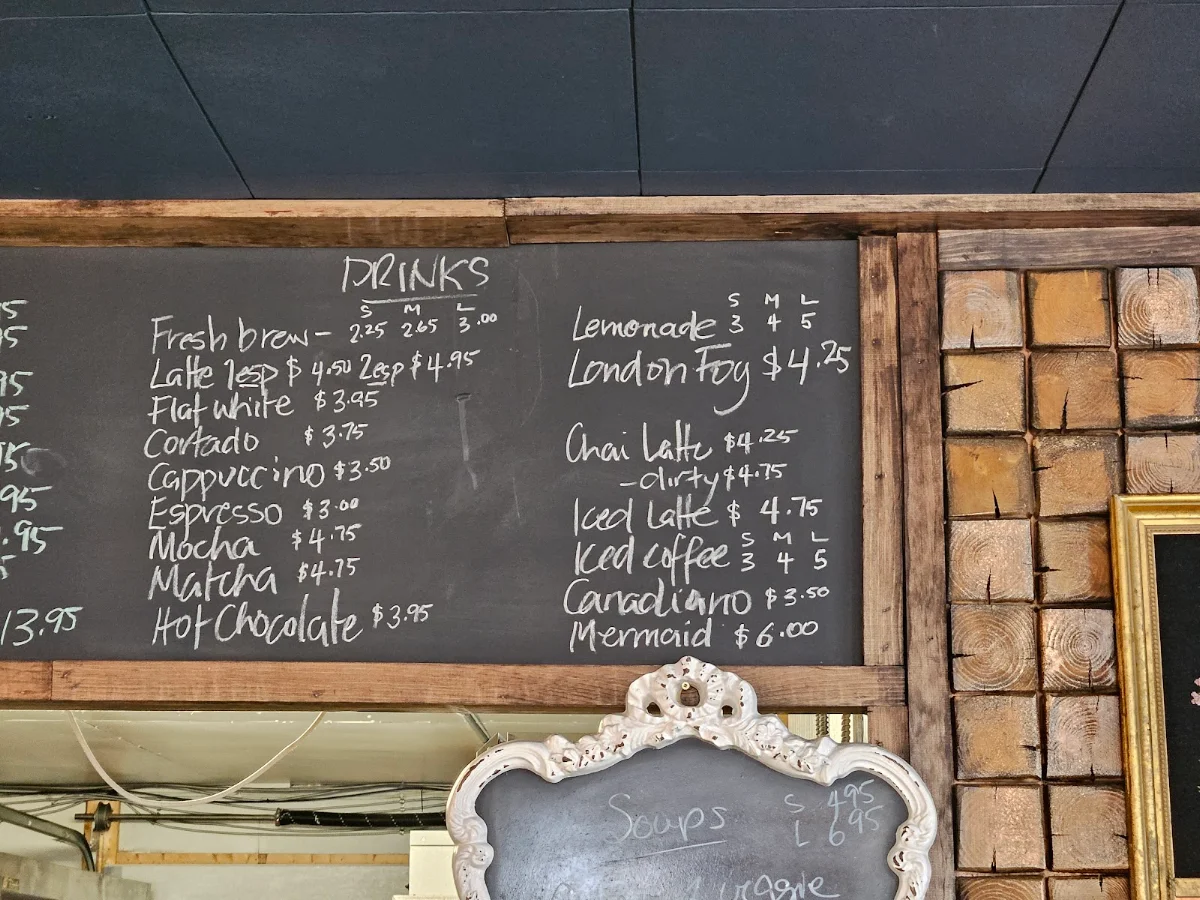 DRINKS
S M L
Fresh brew - 2.25 2.65 3.00
Latte 1esp $4.50 2esp $4.95
Flat white $3.95
Cortado $3.75
Cappuccino $3.50
Espresso $3.00
Mocha $4.75
Matcha $4.75
Hot Chocolate $3.95
S M L
Lemonade 3 4 5
London Fog $4.25
Chai Latte $4.25
- dirty $4.75
Iced Latte $4.75
S M L
Iced coffee 3 4 5
Canadiano $3.50
Mermaid $6.00
13.95
Soups S 4.95
L 6.95
veggie